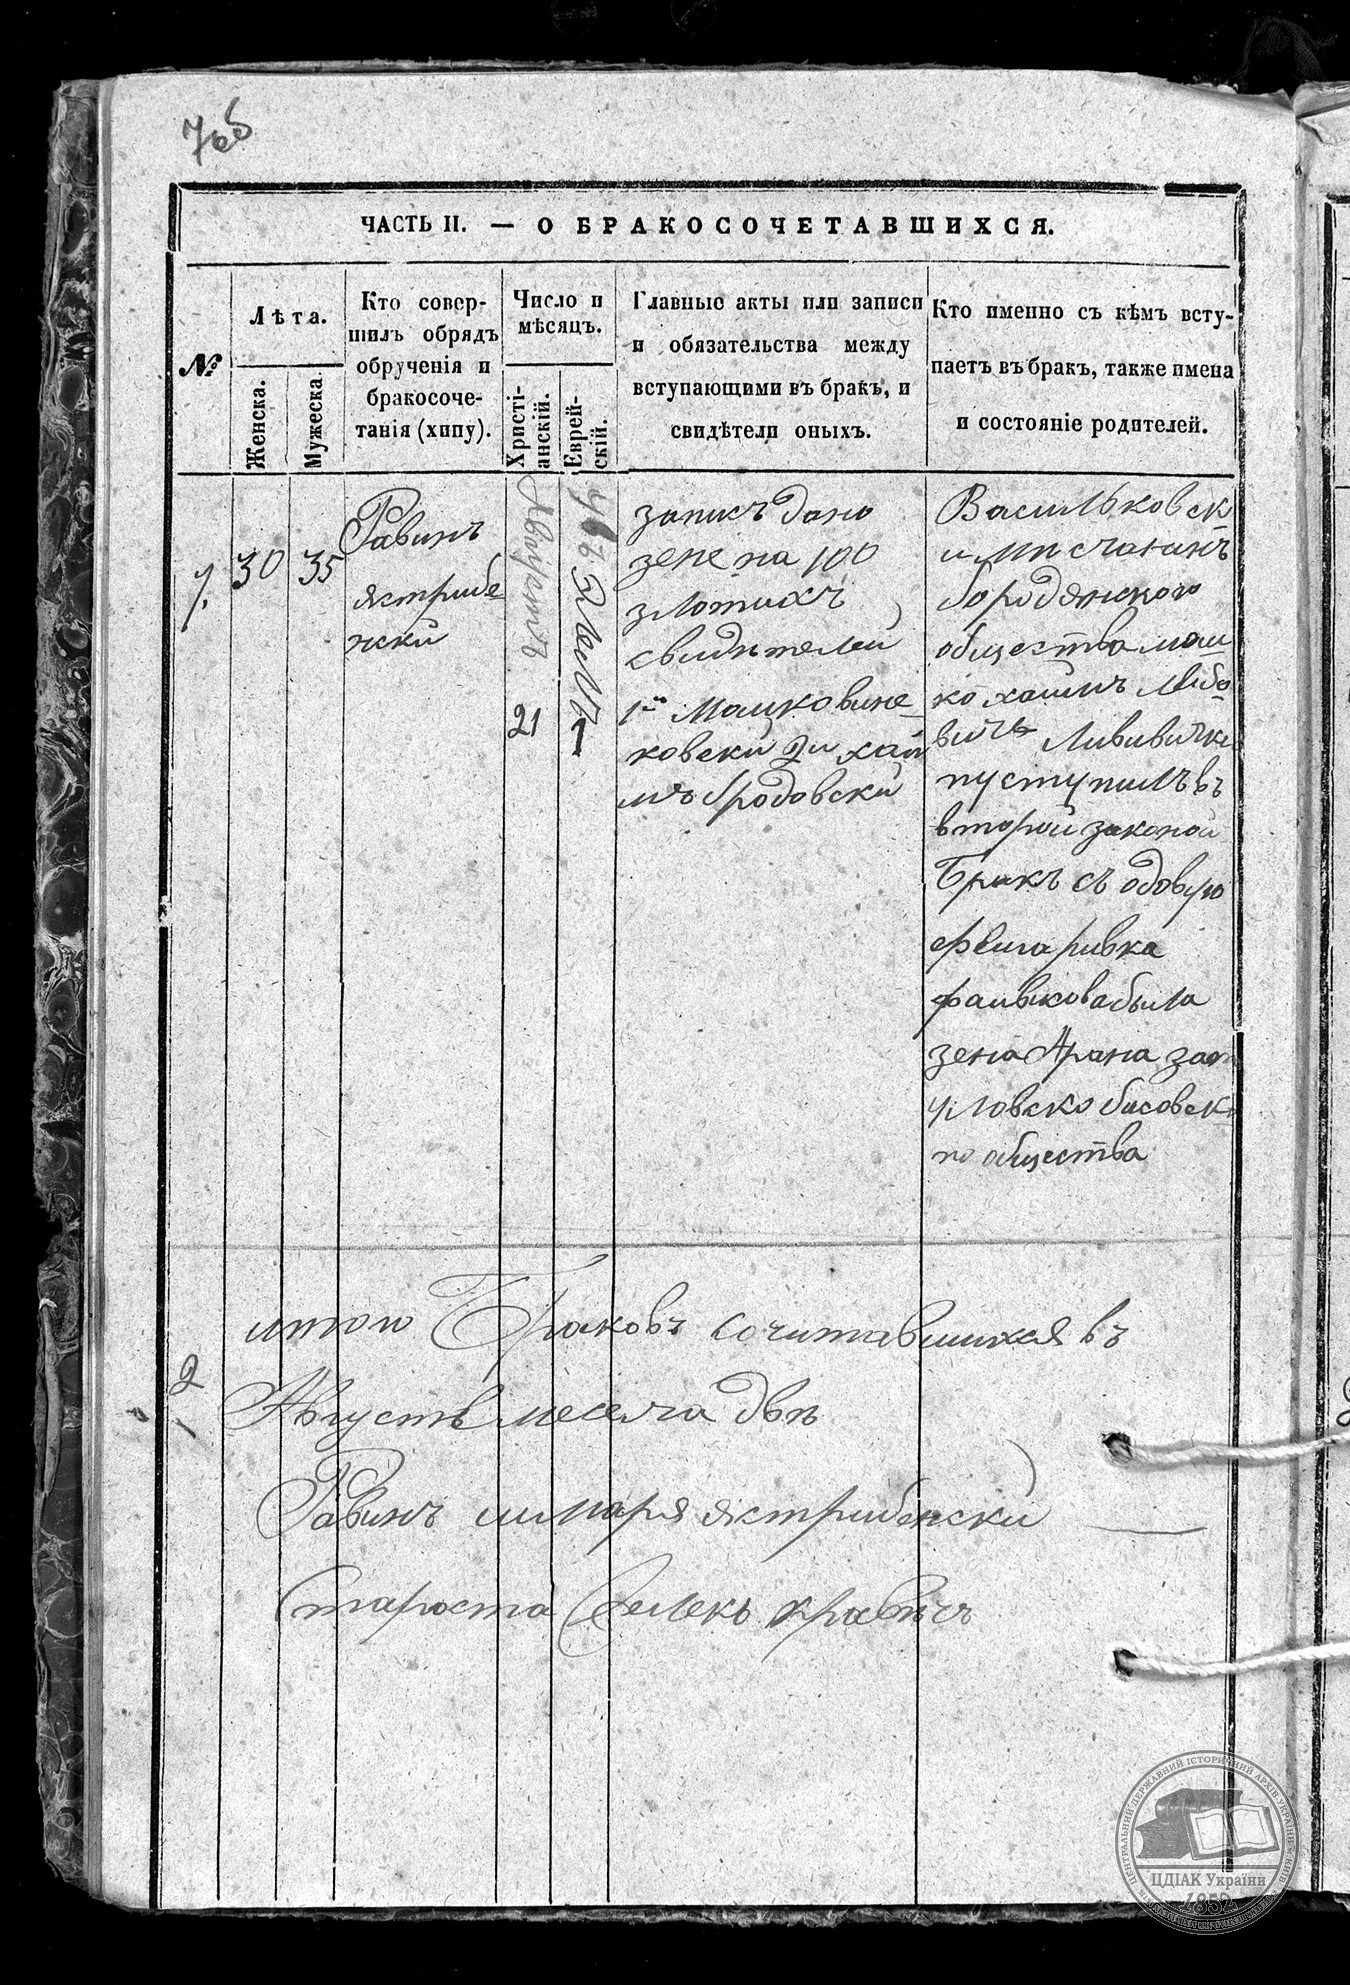 ЧАСТЬ II. — О БРАКОСОЧЕТАВШИХСЯ.
№
Лѣта.
Женска.
Мужеска.
Кто совер-
шилъ обрядъ
обрученія и
бракосоче-
танія (хипу).
Число и
мѣсяцъ.
Христі-
анскій.
Еврей-
скій.
Главные акты или записи
и обязательства между
вступающими въ бракъ, и
свидѣтели оныхъ.
Кто именно съ кѣмъ всту-
паетъ въ бракъ, также имена
и состояніе родителей.
30
35
Равинъ
ястрибе-
нски
Августъ
21
запись дано
зене на 100
злотихъ
свидѣтелей
ковски 2и хаи
мъ бродовски
Васильковск
бородянского
общества мош
ко хаимъ
пуступилъ въ
второи законои
Бракъ съ одовую
феига ривка
фаивкова была
зена Арана
по общества
итого Браковъ сочитавшихся въ
2
Августъ месяца двѣ
Равинъ шмаря ястрибенски
Староста
ЦЕНТРАЛЬНИЙ ДЕРЖАВНИЙ ІСТОРИЧНИЙ АРХІВ УКРАЇНИ М. КИЇВ
ЦДІАК України
1852